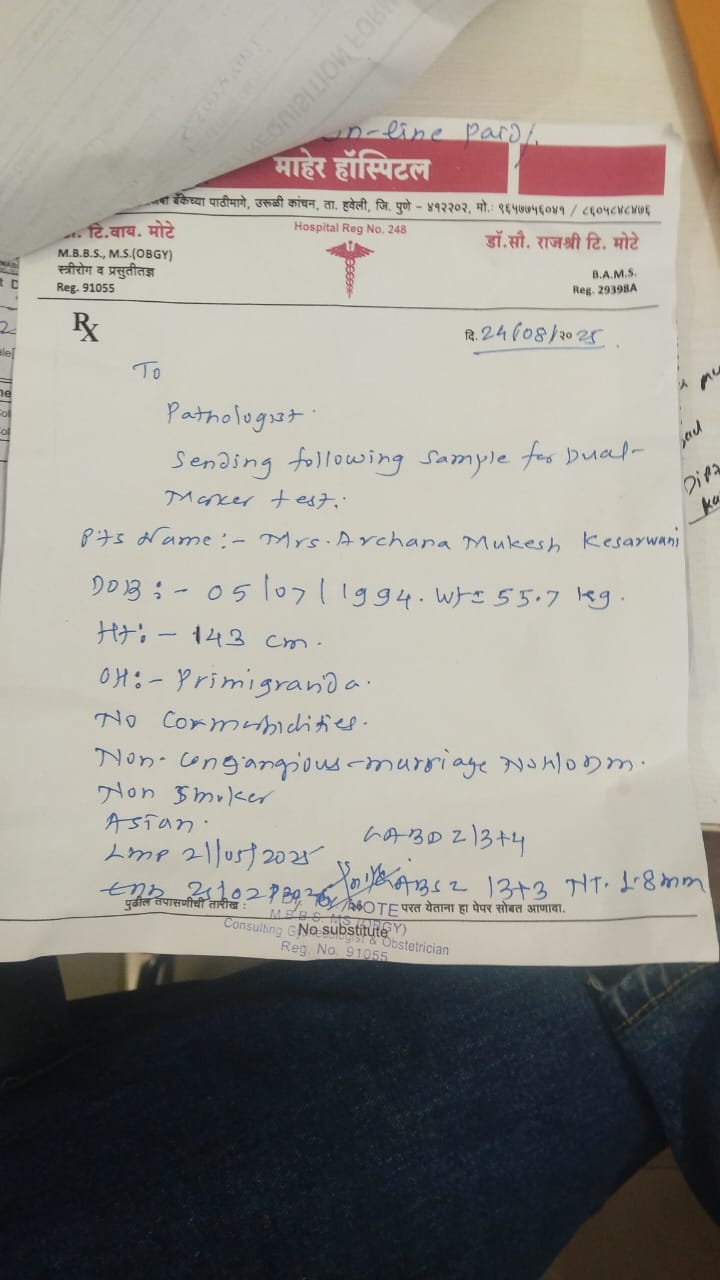 on-line paid/.
माहेर हॉस्पिटल
बँकेच्या पाठीमागे, उरूळी कांचन, ता. हवेली, जि. पुणे - ४१२२०२, मो.: ९६५७७५६०४१ / ८६०५४८४७६
टि.वाय. मोटे
Hospital Reg No. 248
डॉ.सौ. राजश्री टि. मोटे
M.B.B.S., M.S.(OBGY)
स्त्रीरोग व प्रसुतीतज्ञ
B.A.M.S.
Reg. 91055
Reg. 29398A
Rx
दि. 24/08/२०25.
To
Pathologist.
Sending following sample for Dual-
Marker test.
Pts Name:- Mrs. Archana Mukesh Kesarwani
DOB:- 05/07/1994. Wt= 55.7 kg.
Ht:- 143 cm.
OH:- Primigravida.
No Cormubidities.
Non-congangious-marriage
Non Smoker
Asian.
13+4
LMP 21/05/2025
13+3 NT. 1.8mm
पुढील तपासणीची तारीख :
MOTE परत येताना हा पेपर सोबत आणावा.
M.B.B.S. MS (OBGY)
No substitute
Consulting Gynecologist & Obstetrician
Reg. No. 91055